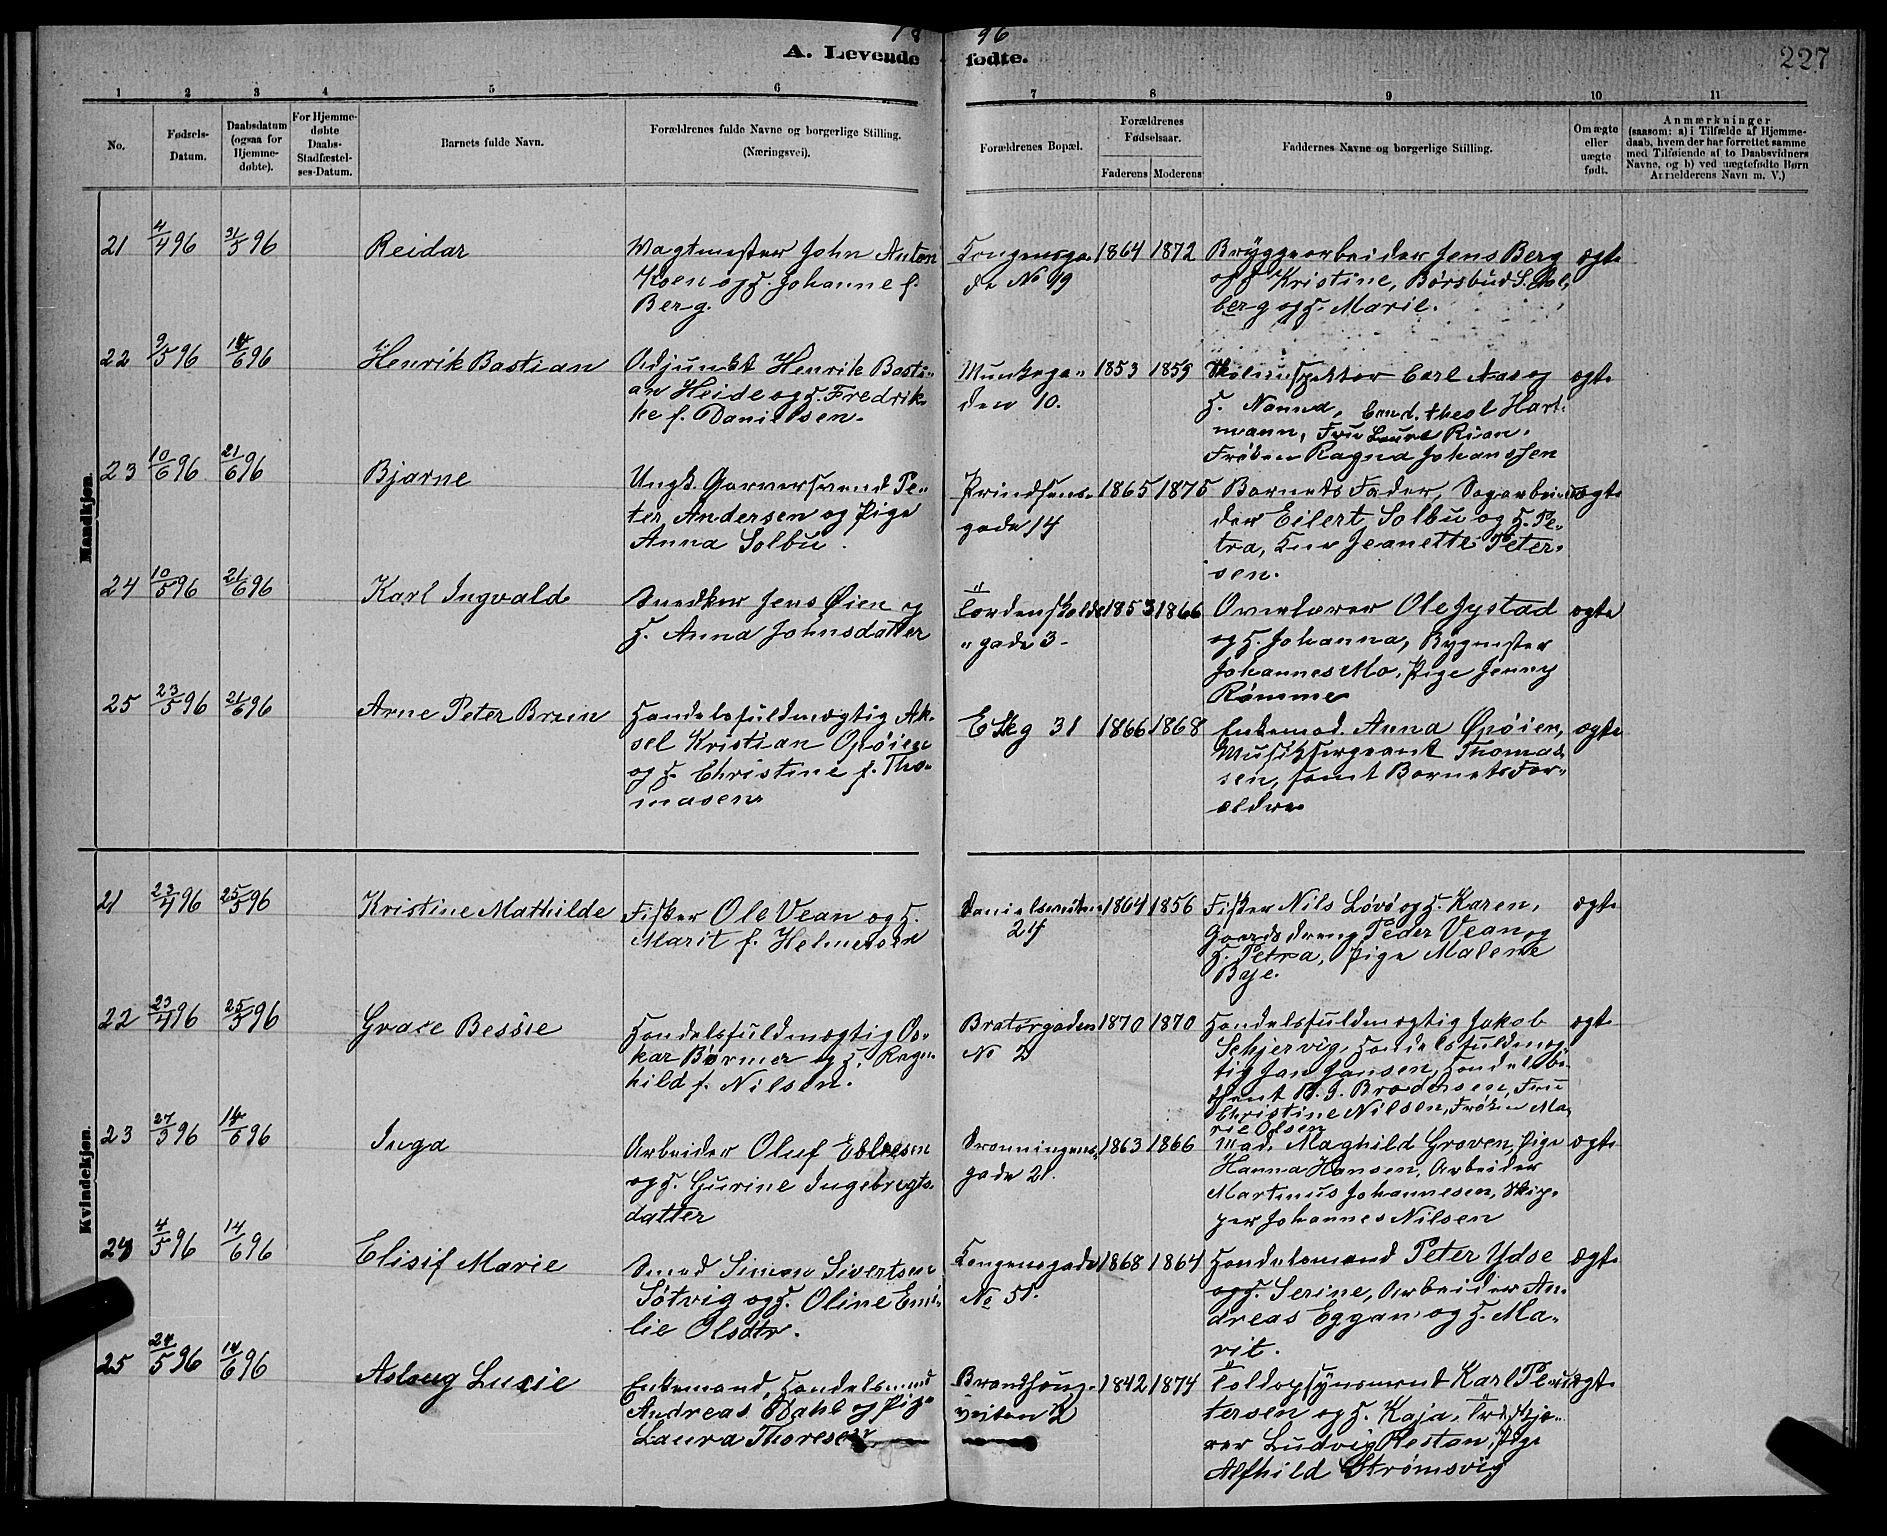 18 96
A. Levende fødte. 227
1 2 3 4 5 6 7 8 9 10 11
No.
Fødsels-Datum.
Daabsdatum (ogsaa for Hjemme-døbte).
For Hjemme-døbte Daabs-Stadfæstel-ses-Datum.
Barnets fulde Navn.
Forældrenes fulde Navne og borgerlige Stilling. (Næringsvei).
Forældrenes Bopæl.
Forældrenes Fødselsaar.
Faderens Moderens
Faddernes Navne og borgerlige Stilling.
Om ægte eller uægte født.
Anmærkninger
(saasom: a) i Tilfælde af Hjemme-
daab, hvem der har forrettet samme
med Tilføiende af to Daabsvidners
Navne, og b) ved uægtefødte Børn
Anmelderens Navn m. V.)
Mandkjøn.
21 4/4 96 31/5 96 Reidar
Vagtmester John Anton
Koen og H. Johanne f.
Berg.
Kongensga-
de No 19
1864 1872
Bryggearbeider Jens Berg
og H Kristine, Børsbud S. Sol-
berg og H. Marie.
ægte
22 9/5 96 14/6 96 Henrik Bastian
Adjunkt Henrik Basti-
an Heide og H. Fredrik-
ke f. Danielsen.
Munkega-
den 10.
1853 1859
Skoleinspektør Carl Aas og
H. Nanna, Cand. theol Hart-
mann, Fru Laura Rian,
Frøken Ragna Johanssen
ægte
23 10/6 96 21/6 96 Bjarne
Ungk. Garversvend Pe-
ter Andersen og Pige
Anna Solbu.
Prindsens-
gade 14
1865 1875
Barnets Fader, Sagarbei-
der Eilert Solbu og H. Pe-
tra, Enke Jeanette Peter-
sen.
uægte
24 10/5 96 21/6 96 Karl Ingvald
Snedker Jens Øien og
H. Anna Johnsdatter
Tordenskolds
"gade 3-
1853 1866
Overlærer Ole Jystad
og H. Johanna, Bygmester
Johannes Mo, Pige Jenny
Rømme
ægte
25 23/5 96 21/6 96 Arne Peter Brun
Handelsfuldmægtig Ak-
sel Kristian Opøien
og H. Christine f. Tho-
masen
E Skg 31
1866 1868
Enkemad. Anna Opøien,
Musiksergeant Thomas-
sen, samt Barnets For-
ældre
ægte
Kvindekjøn.
21 23/4 96 25/5 96 Kristine Mathilde
Fisker Ole Vean og H.
Marit f. Helmersen
Danielsveiten
24
1864 1856
Fisker Nils Løvö og H. Karen,
Gaardsdreng Peder Vean og
H. Petra, Pige Malene
Bye.
ægte
22 23/4 96 25/5 96 Grace Bessie
Handelsfuldmægtig Os-
kar Børmer og H. Ragn-
hild f. Nilsen.
Bratørgaden
No 2
1870 1870
Handelsfuldmægtig Jakob
Schjervig, Handelsfuldmæg-
tig Jan Jansen, Handelsbe-
tjent B. J. Brodersen, Fru
Christine Nilsen, Frøken Ma-
rie Olsen
ægte
23 27/3 96 14/6 96 Inga
Arbeider Oluf Ebbesen
og H. Gurine Ingebrigts-
datter
Dronningens-
gade 21.
1863 1866
Mad. Maghild Groven, Pige
Hanna Hansen, Arbeider
Martinus Johannesen, Skip-
per Johannes Nilsen
ægte
24 4/5 96 14/6 96 Elisif Marie
Smed Simon Sivertsen
Søtvig og H. Oline Emi-
lie Olsdtr.
Kongensgade
No 51.
1868 1864
Handelsmand Peter Ydse
og H. Serine, Arbeider An-
dreas Eggan og H. Ma-
rit.
ægte
25 24/5 96 14/6 96 Aslaug Lucie
Enkemand, Handelsmand
Andreas Dahl og Pige
Laura Thoresen
Brandhaug-
veiten 2
1842 1874
Toldopsynsmand Karl Pe-
tersen og H. Kaja,
Ludvig Restan, Pige
Alfhild Strømsvig
uægte